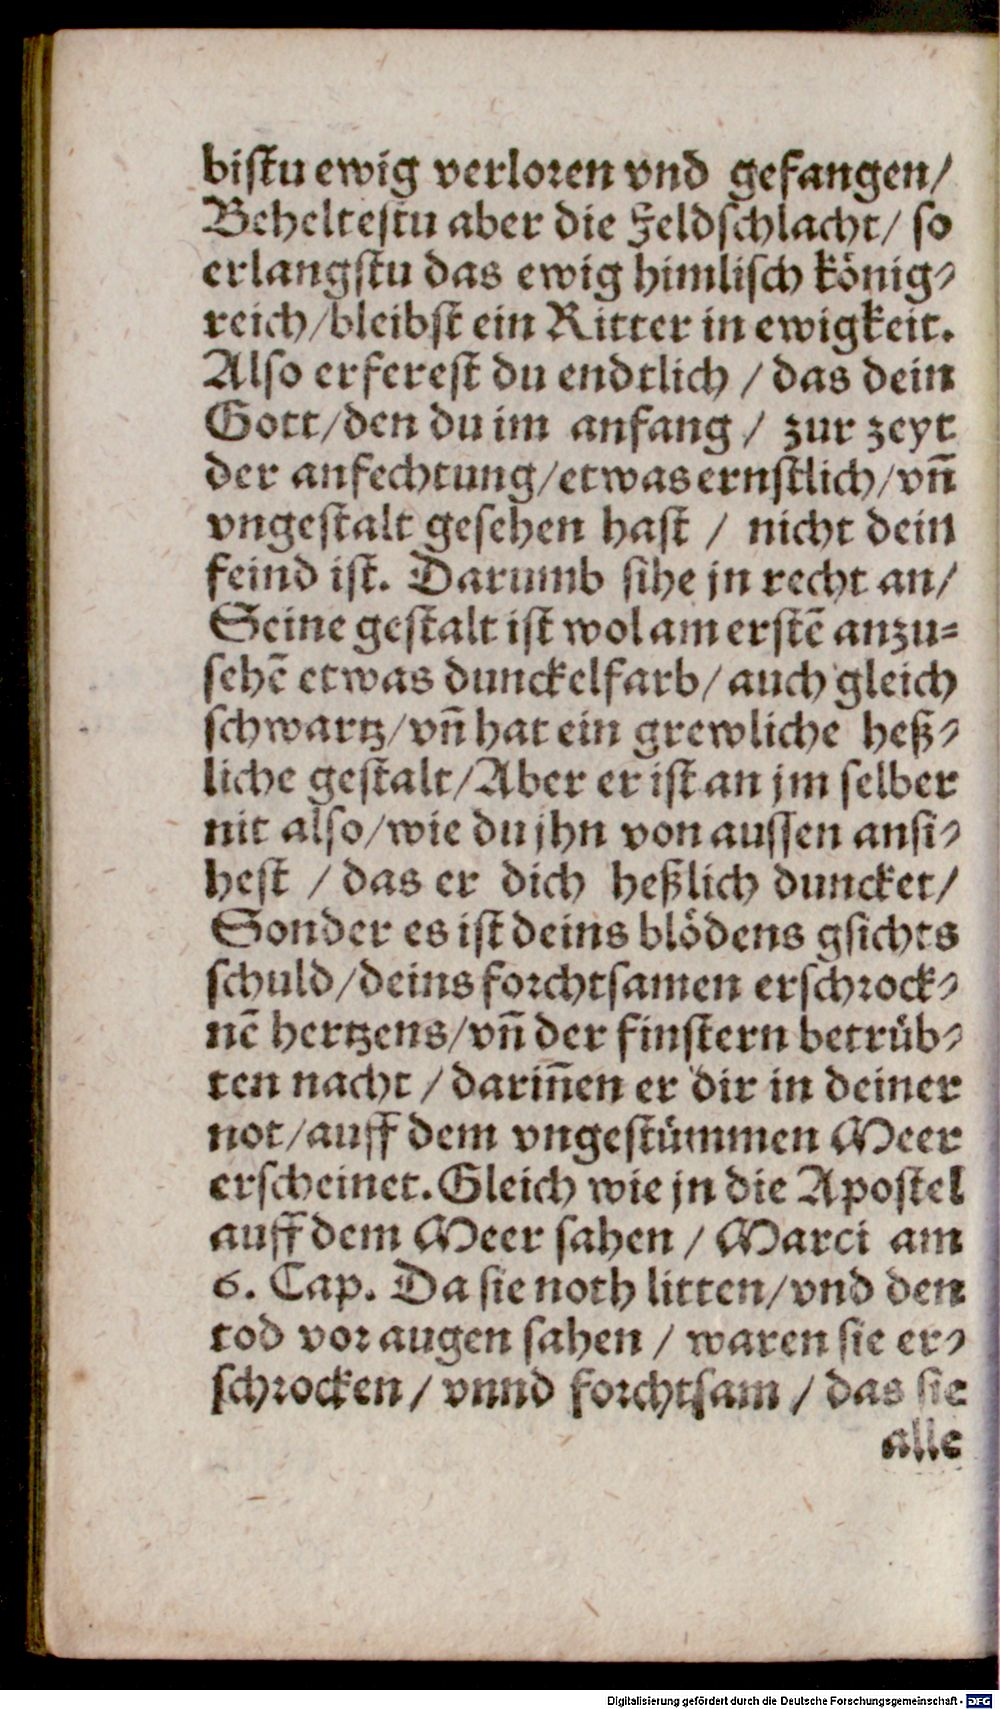 bistu ewig verloren vnd gefangen/
Beheltestu aber die Feldschlacht/ so
erlangstu das ewig himlisch könig⸗
reich/bleibst ein Ritter in ewigkeit.
Also erferest du endtlich / das dein
Gott/den du im anfang / zur zeyt
der anfechtung/etwas ernstlich/vñ
vngestalt gesehen hast / nicht dein
feind ist. Darumb sihe jn recht an/
Seine gestalt ist wol am erstẽ anzu⸗
sehẽ etwas dunckelfarb/auch gleich
schwartz/vñ hat ein grewliche heß⸗
liche gestalt/Aber er ist an jm selber
nit also/wie du jhn von aussen ansi⸗
hest / das er dich heßlich duncket/
Sonder es ist deins blödens gsichts
schuld/deins forchtsamen erschrock⸗
nẽ hertzens/vñ der finstern betrüb⸗
ten nacht / dariñen er dir in deiner
not/auff dem vngestümmen Meer
erscheinet. Gleich wie jn die Apostel
auff dem Meer sahen / Marci am
6. Cap. Da sie noth litten/vnd den
tod vor augen sahen / waren sie er⸗
schrocken/ vnnd forchtsam / das sie
alle
Digitalisierung gefördert durch die Deutsche Forschungsgemeinschaft - DFG